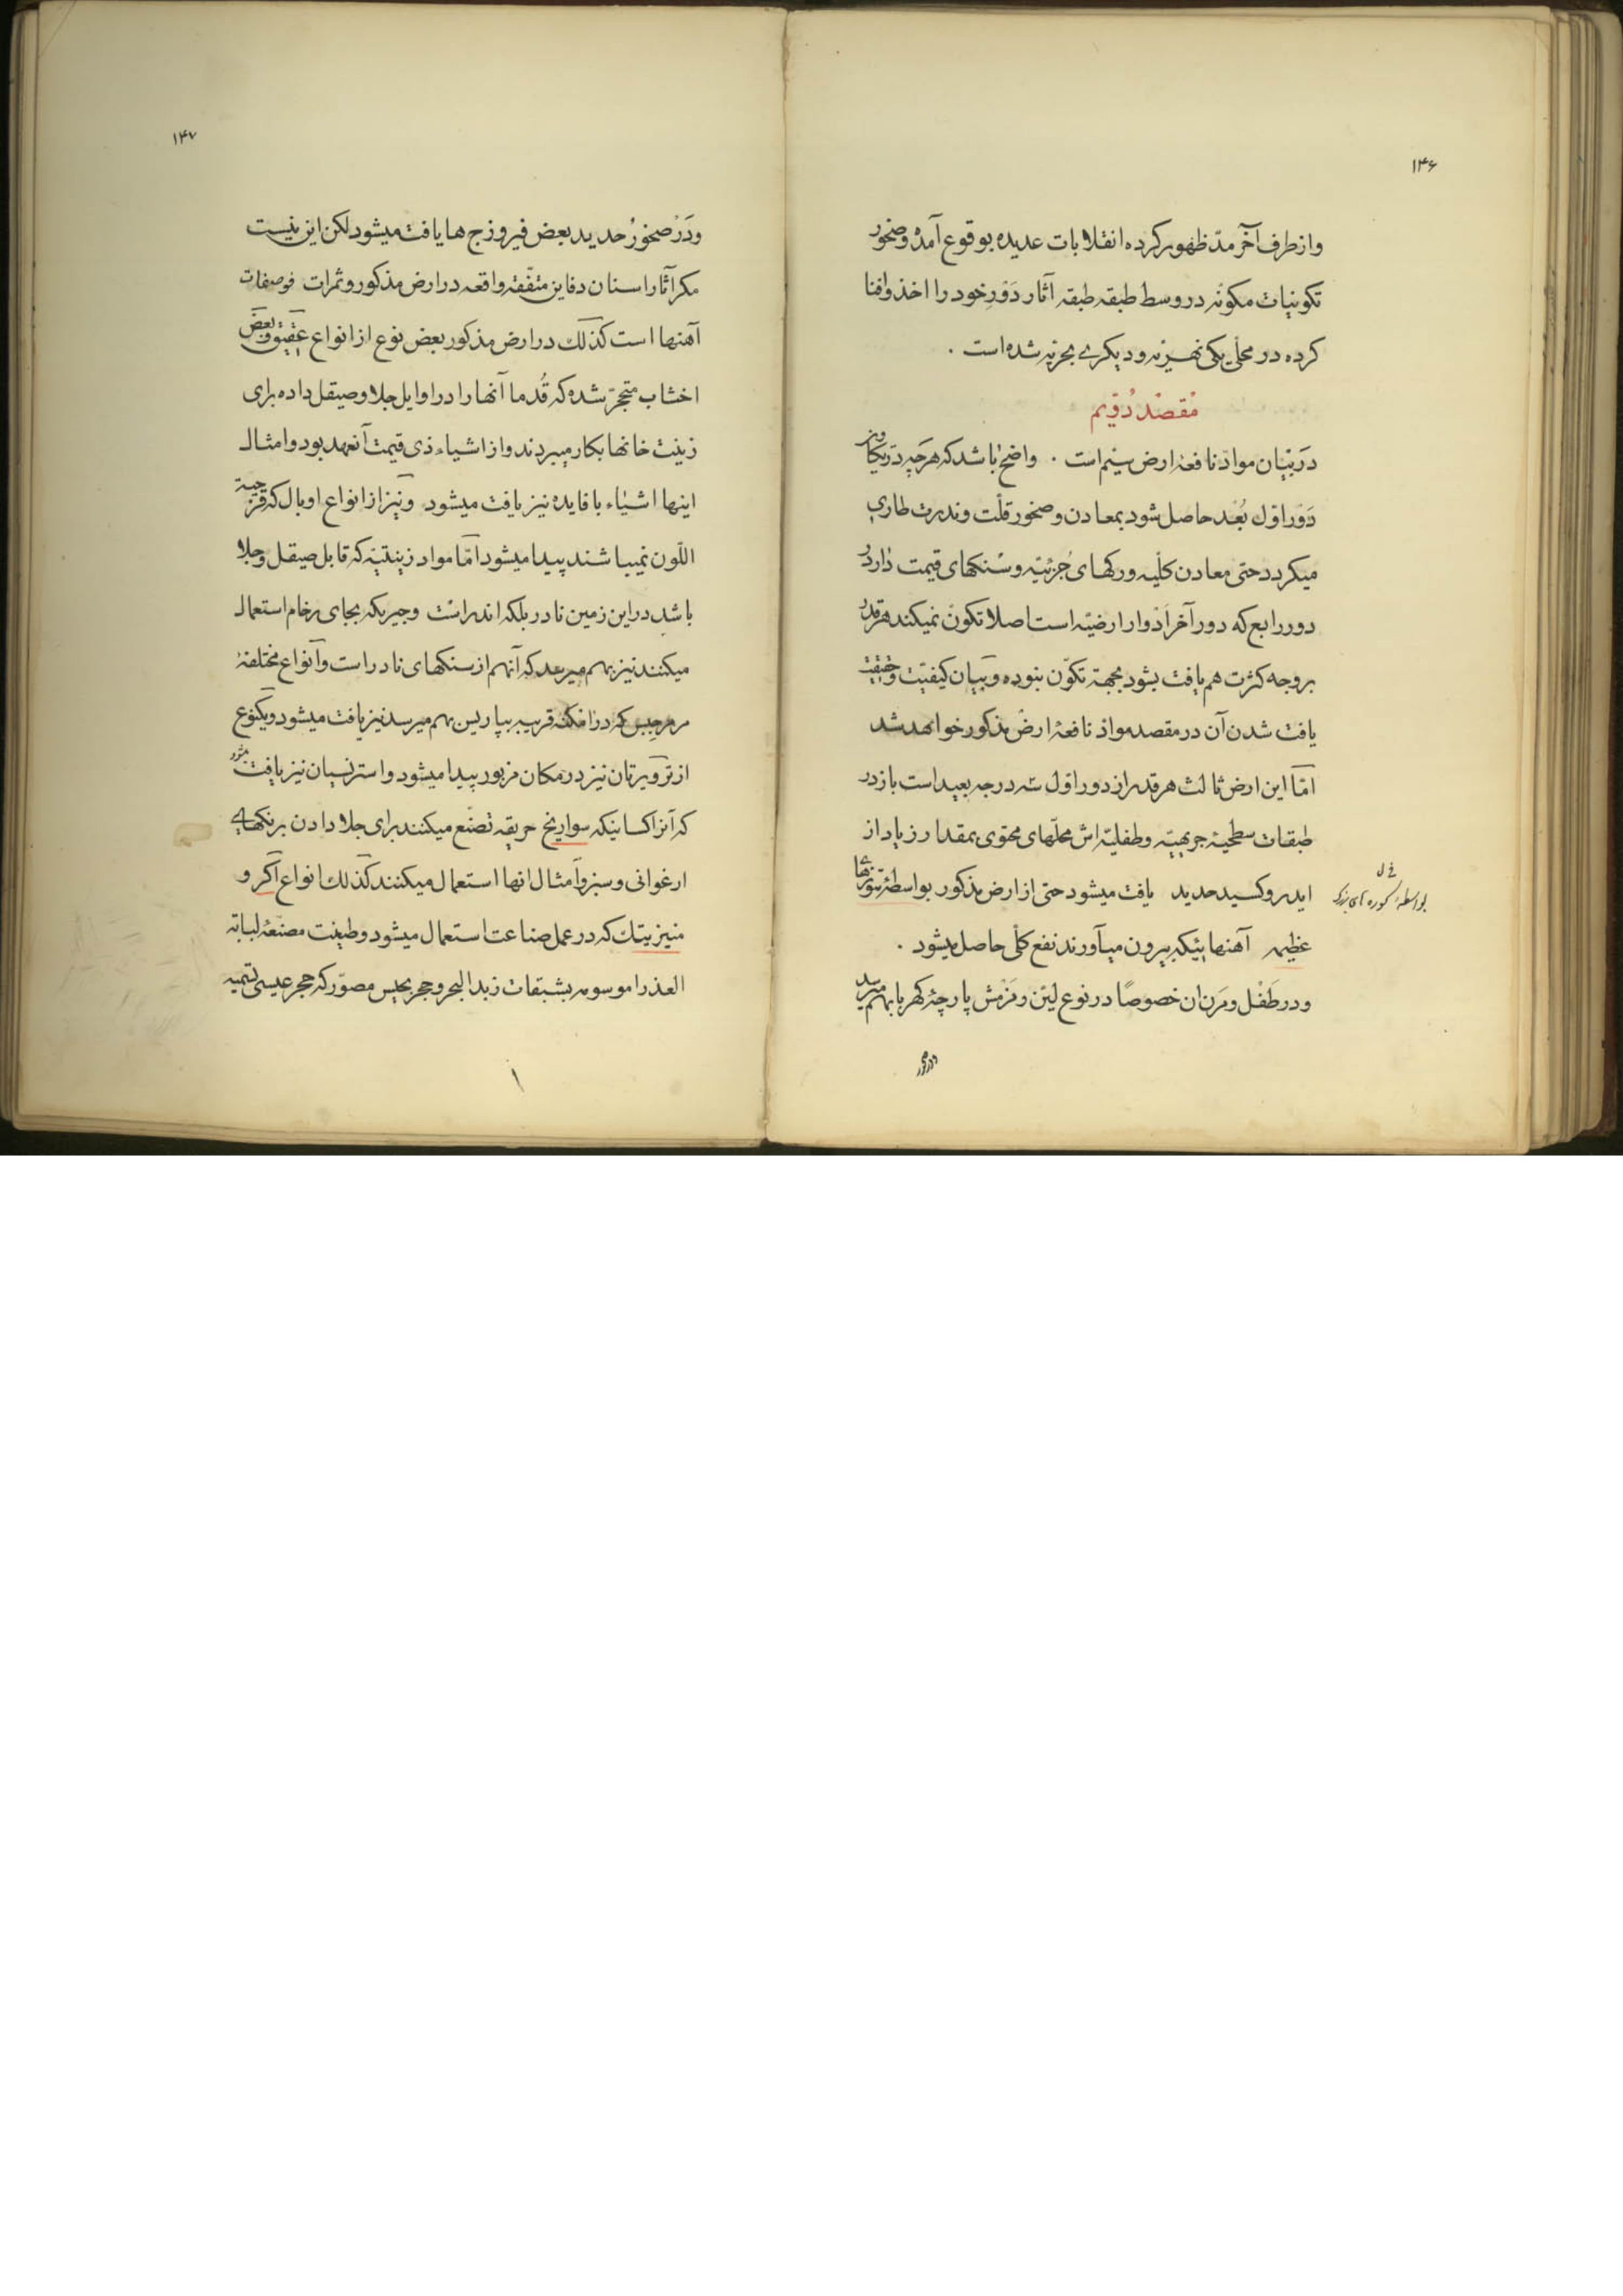 ۱۴۶
واز طرف آخر مدّ ظهور کرده انقلابات عدیده بوقوع آمده وصخور
تکوینیات مکونه در وسط طبقه طبقه آثار دَورِ خود را اخذ وافنا
کرده در محلّی یکی نهریه ودیکری بحریه شده است ۰
مقصد دُوّیم
در بیان مواد نافعهٔ ارض سیّم است ۰ واضح باشد که هر چه در یکا
دَور اوّل بُعد حاصل شود بمعادن وصخور قلّت وندرت طاری
میکردد حتی معادن کلّیه ورکهای جُزئیّه وسنکهای قیمت دار در
دور رابع که دور آخر اَدوار ارضیّه است اصلا تکوّن نمیکند هر قدر
بر وجه کثرت هم یافت بشود بجهة تکوّن نبوده وبیان کیفیّت وحقیقت
یافت شدن آن در مقصد مواد نافعهٔ ارض مذکور خواهد شد
امّا این ارض ثالث هر قدر از دور اوّل سه درجه بعید است باز در
طبقات سطحیهٔ جربهییّه وطفلیّه اش محلّهای محتوی بمقدار زیاد از
ایدروکسید حدید یافت میشود حتی از ارض مذکور بواسطهٔ تنورها
بواسطهٔ کوره های بزرک
عظیمه آهنهائیکه بیرون میآورند نفع کلّی حاصل میشود ۰
ودر طَفْل ومَرن ان خصوصًا در نوع لیّن ونَرْمش پارچهٔ کهربا بهم میرسد
۱۴۷
ودَر صخورُ حدید بعض فیروزج ها یافت میشود لکن این نیست
مکر آثار اسنان دفاین متفّقه واقعه در ارض مذکور وثمرات فوصفات
آهنها است کذلک در ارض مذکور بعض نوع از انواع عقیق وبعض
اخشاب متحجّر شده که قُدما آنها را در اوایل جلا وصیقل داده برای
زینت خانها بکار میبردند واز اشیاء ذی قیمت آنعهد بود وامثال
اینها اشیاء با فایده نیز یافت میشود ونیز از انواع اوبال که قزحیة
اللّون نمیباشند پیدا میشود امّا مواد زینتیّه که قابل صیقل وجلا
باشد در این زمین نادر بلکه اندر است وجیریکه بجای رخام استعمال
میکنند نیز بهم میرسد که آنهم از سنکهای نادر است وانواع مختلفهٔ
مرمر جبس که در امکنه قریبه بپاریس بهم میرسد نیز یافت میشود ویکنوع
از تروَیرتان نیز در مکان مزبور پیدا میشود واسترنسیان نیز یافت میشود
که آنرا کسانیکه سواریخ حریقه تصنّع میکنند برای جلا دادن برنکهای
ارغوانی وسبز واَمثال انها استعمال میکنند کذلک انواع اَکر و
منیزیتک که در عمل صناعت استعمال میشود وطینت مصنّعهٔ لباته
العذرا موسومه بشبقات زبد البحر وحجر بحیس مصوّر که حجر عیسی تسمیه